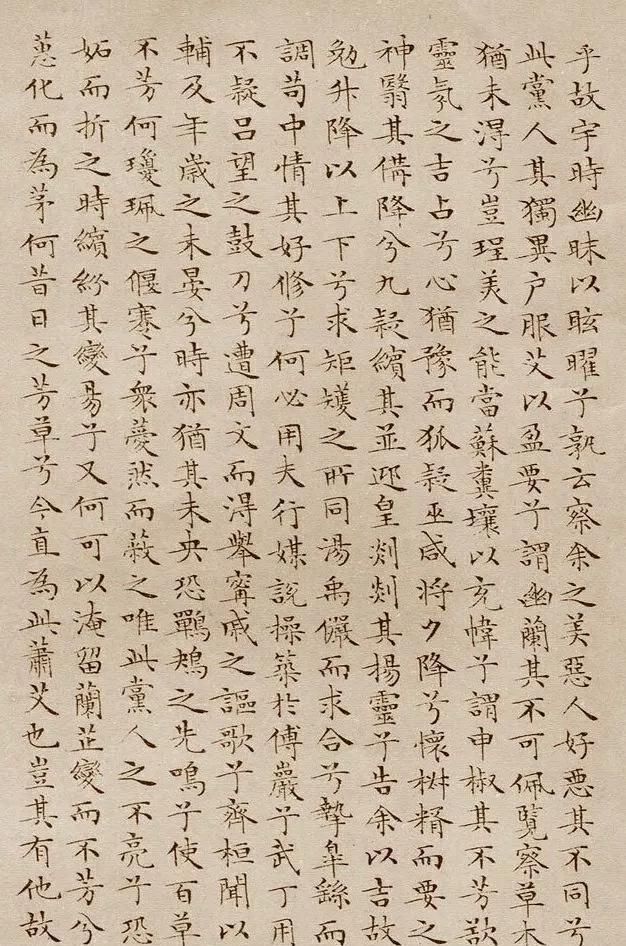 乎故宇時幽昧以眩曜兮孰云察余之美惡人好惡其不同兮
此黨人其獨異户服艾以盈要兮謂幽蘭其不可佩覽察草木
猶未淂兮豈珵美之能當蘇糞壤以充幃兮謂申椒其不芳欲
靈氛之吉占兮心猶豫而狐疑巫咸将夕降兮懷椒糈而要之
神翳其俻降兮九疑繽其並迎皇剡剡其揚靈兮告余以吉故
勉升降以上下兮求矩矱之所同湯禹儼而求合兮摯皐繇而
調苟中情其好修兮何必用夫行媒說操築於傅巖兮武丁用
不疑吕望之鼓刀兮遭周文而淂舉甯戚之謳歌兮齊桓聞以
輔及年歲之未晏兮時亦猶其未央恐鶗鴂之先鳴兮使百草
不芳何瓊珮之偃蹇兮衆薆然而蔽之唯此黨人之不亮兮恐
妬而折之時繽紛其變易兮又何可以淹留蘭芷變而不芳兮
蕙化而為茅何昔日之芳草兮今直為此蕭艾也豈其有他故